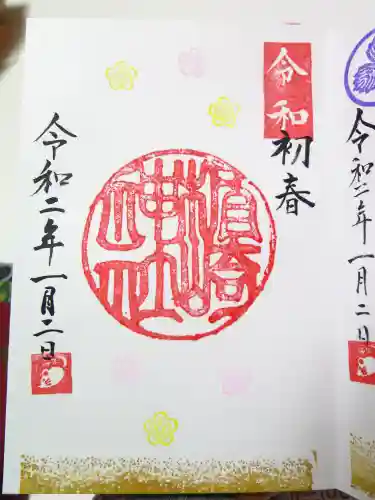 令和
初春
令和二年一月二日
令和二年一月二日